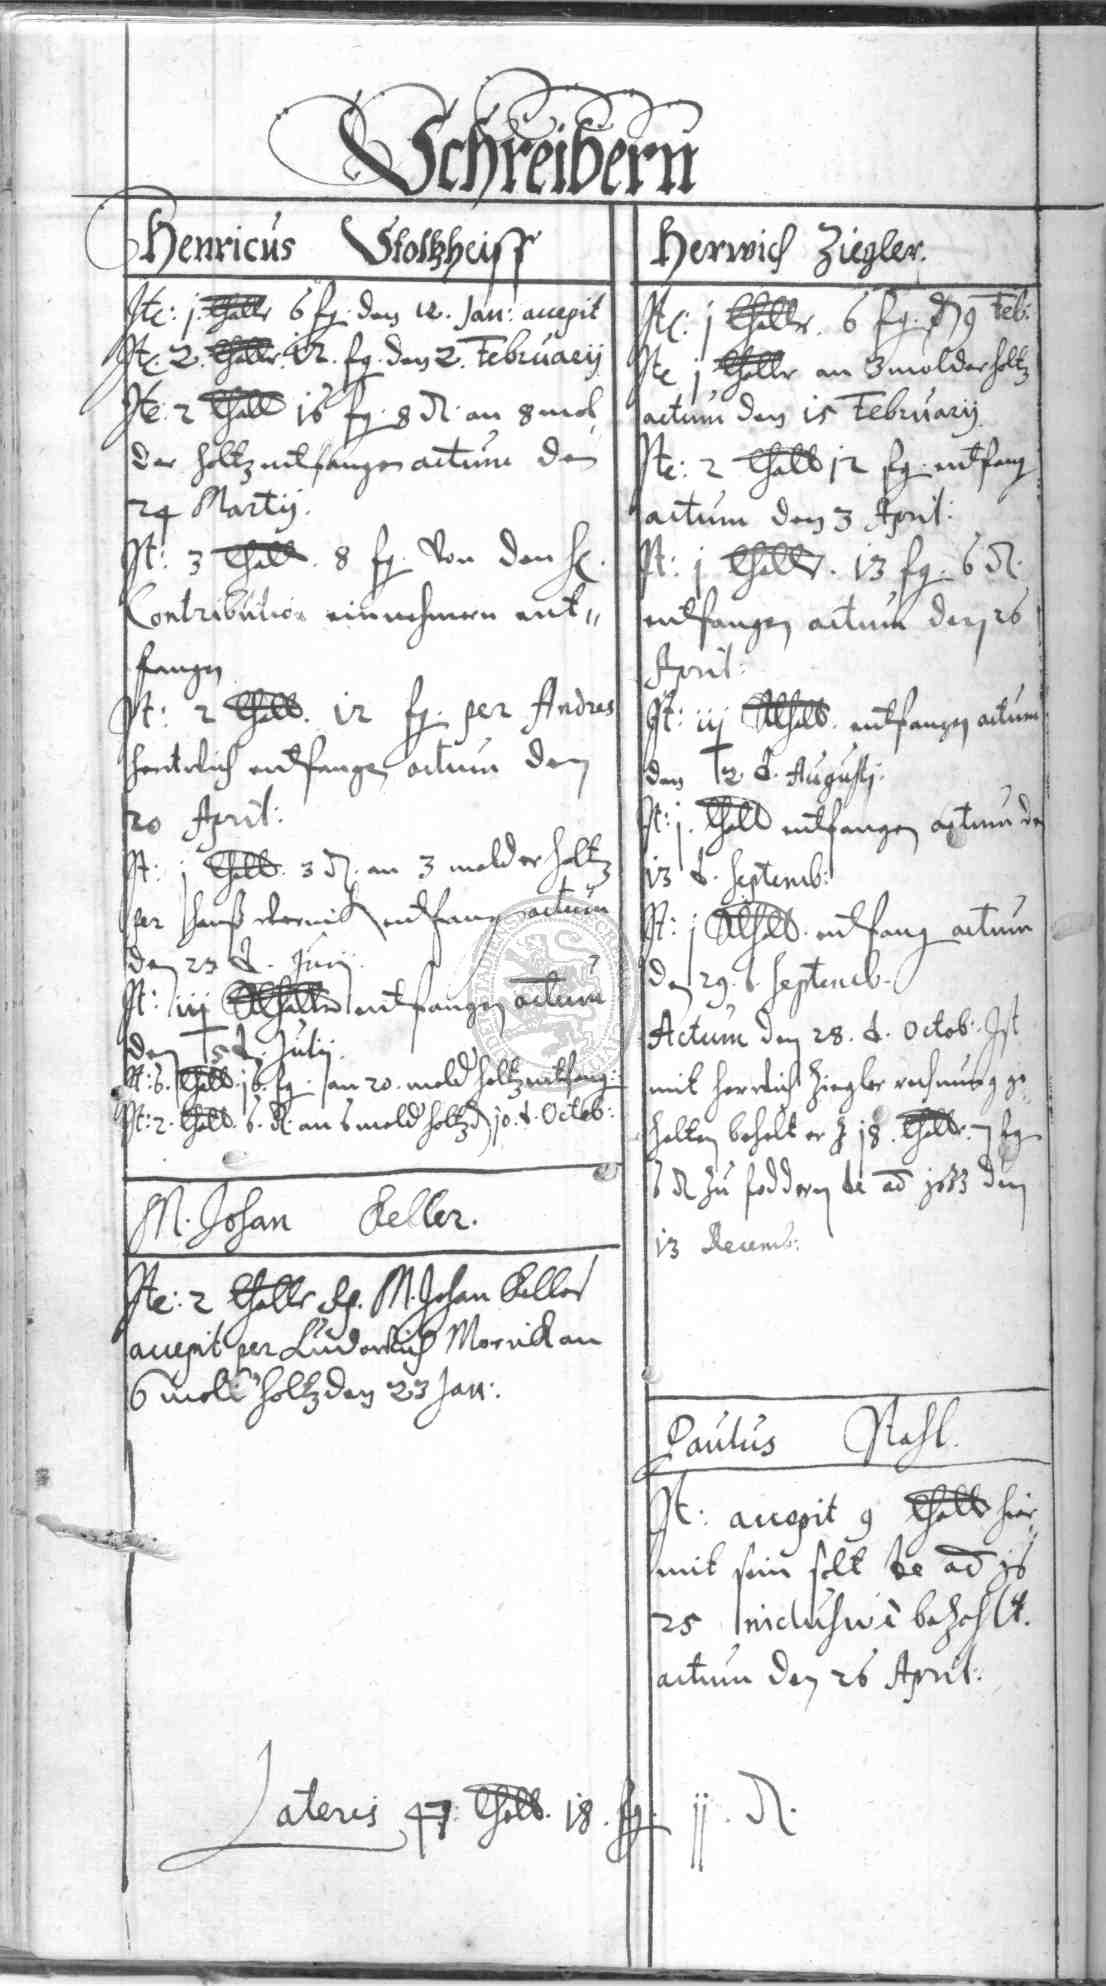 Schreibern
Henricus Stoltzheiss
Ite: j. thaller 6 fg. den 12. Jan: accepit
Ite: 2. thaller. 12. fg. den 2. Februarij
Ite: 2 thall 16 fg. 8 d. an 8 mol
der holtz entfangen actum den
24 Martij.
It: 3 thall. 8 fg. von den
Contribution einnehmern ent〃
fangen
It: 2 thall. 12 fg. per Andres
entfangen actum den
20 April:
It: j thall. 3 d. an 3 molder holtz
per entfang actum
den 23 d. Junij.
It: iij thaller entfangen actum
den 5 d. Julij.
It: 6. thall. 16. fg. an 20. mold holtz entfang:
It: 2. thall. 6. d. an 6 mold holtz d. 10. d. Octob:
M. Johan Keller.
Ite: 2 thaller M. Johan Keller
accepit per Ludowich an
6 mold holtz den 23 Jan:.
Herwich Ziegler.
Ite: j thaller. 6 fg. 9 Feb:
Ite j thaller an 3 molder holtz
actum den 15 Februarij
Ite: 2 thall 12 fg. entfang
actum den 3 April:
It: j thaller. 13 fg. 6 d.
entfangen actum den 26
April:
It: iij thall. entfangen actum
den 2. d. Augustj.
It: j. thall entfangen actum den
13 d. Septemb:
It: j thall. entfang actum
den 29. d. Septemb.
Actum den 28. d. Octob: Ist
mit Herwich Ziegler rechnung ge〃
halten behelt er 18. thaller. 7 fg
6 d zu foddern de ad 1633 den
13 Decemb:
Paulus Stahl.
It: accepit 9 thaller hier
mit sein solt de ad 16
25 inclusive bezahlt.
actum den 26 April:
Lateris 47 thall. 18. fg. jj. d.